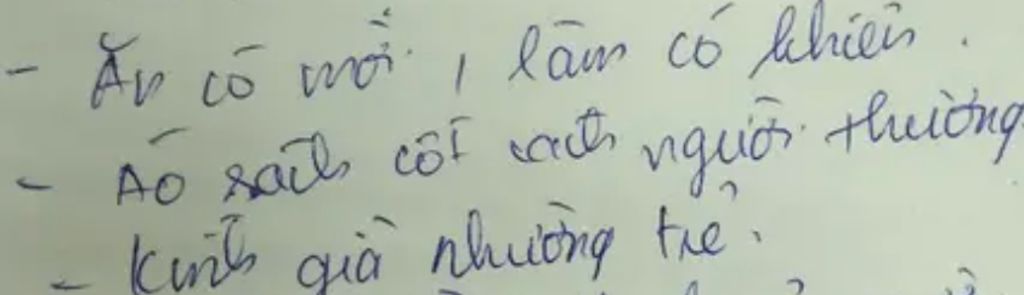 - Ăn có mời, làm có khiến.
- Áo rách cốt cách người thường
- Kính già nhường trẻ.